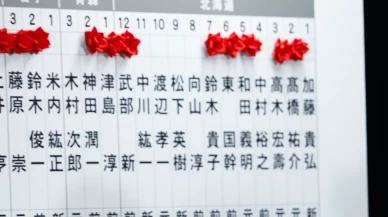 北海道
青森
1
加藤貴弘
2
髙橋祐介
3
高木宏壽
4
中村裕之
5
和田義明
6
東国幹
7
鈴木貴子
8
向山淳
9
松下英樹
10
渡辺孝一
11
中川紘一
12
武部新
1
津島淳
2
神田潤一
3
木村次郎
1
米内紘正
2
鈴木俊一
3
藤原崇